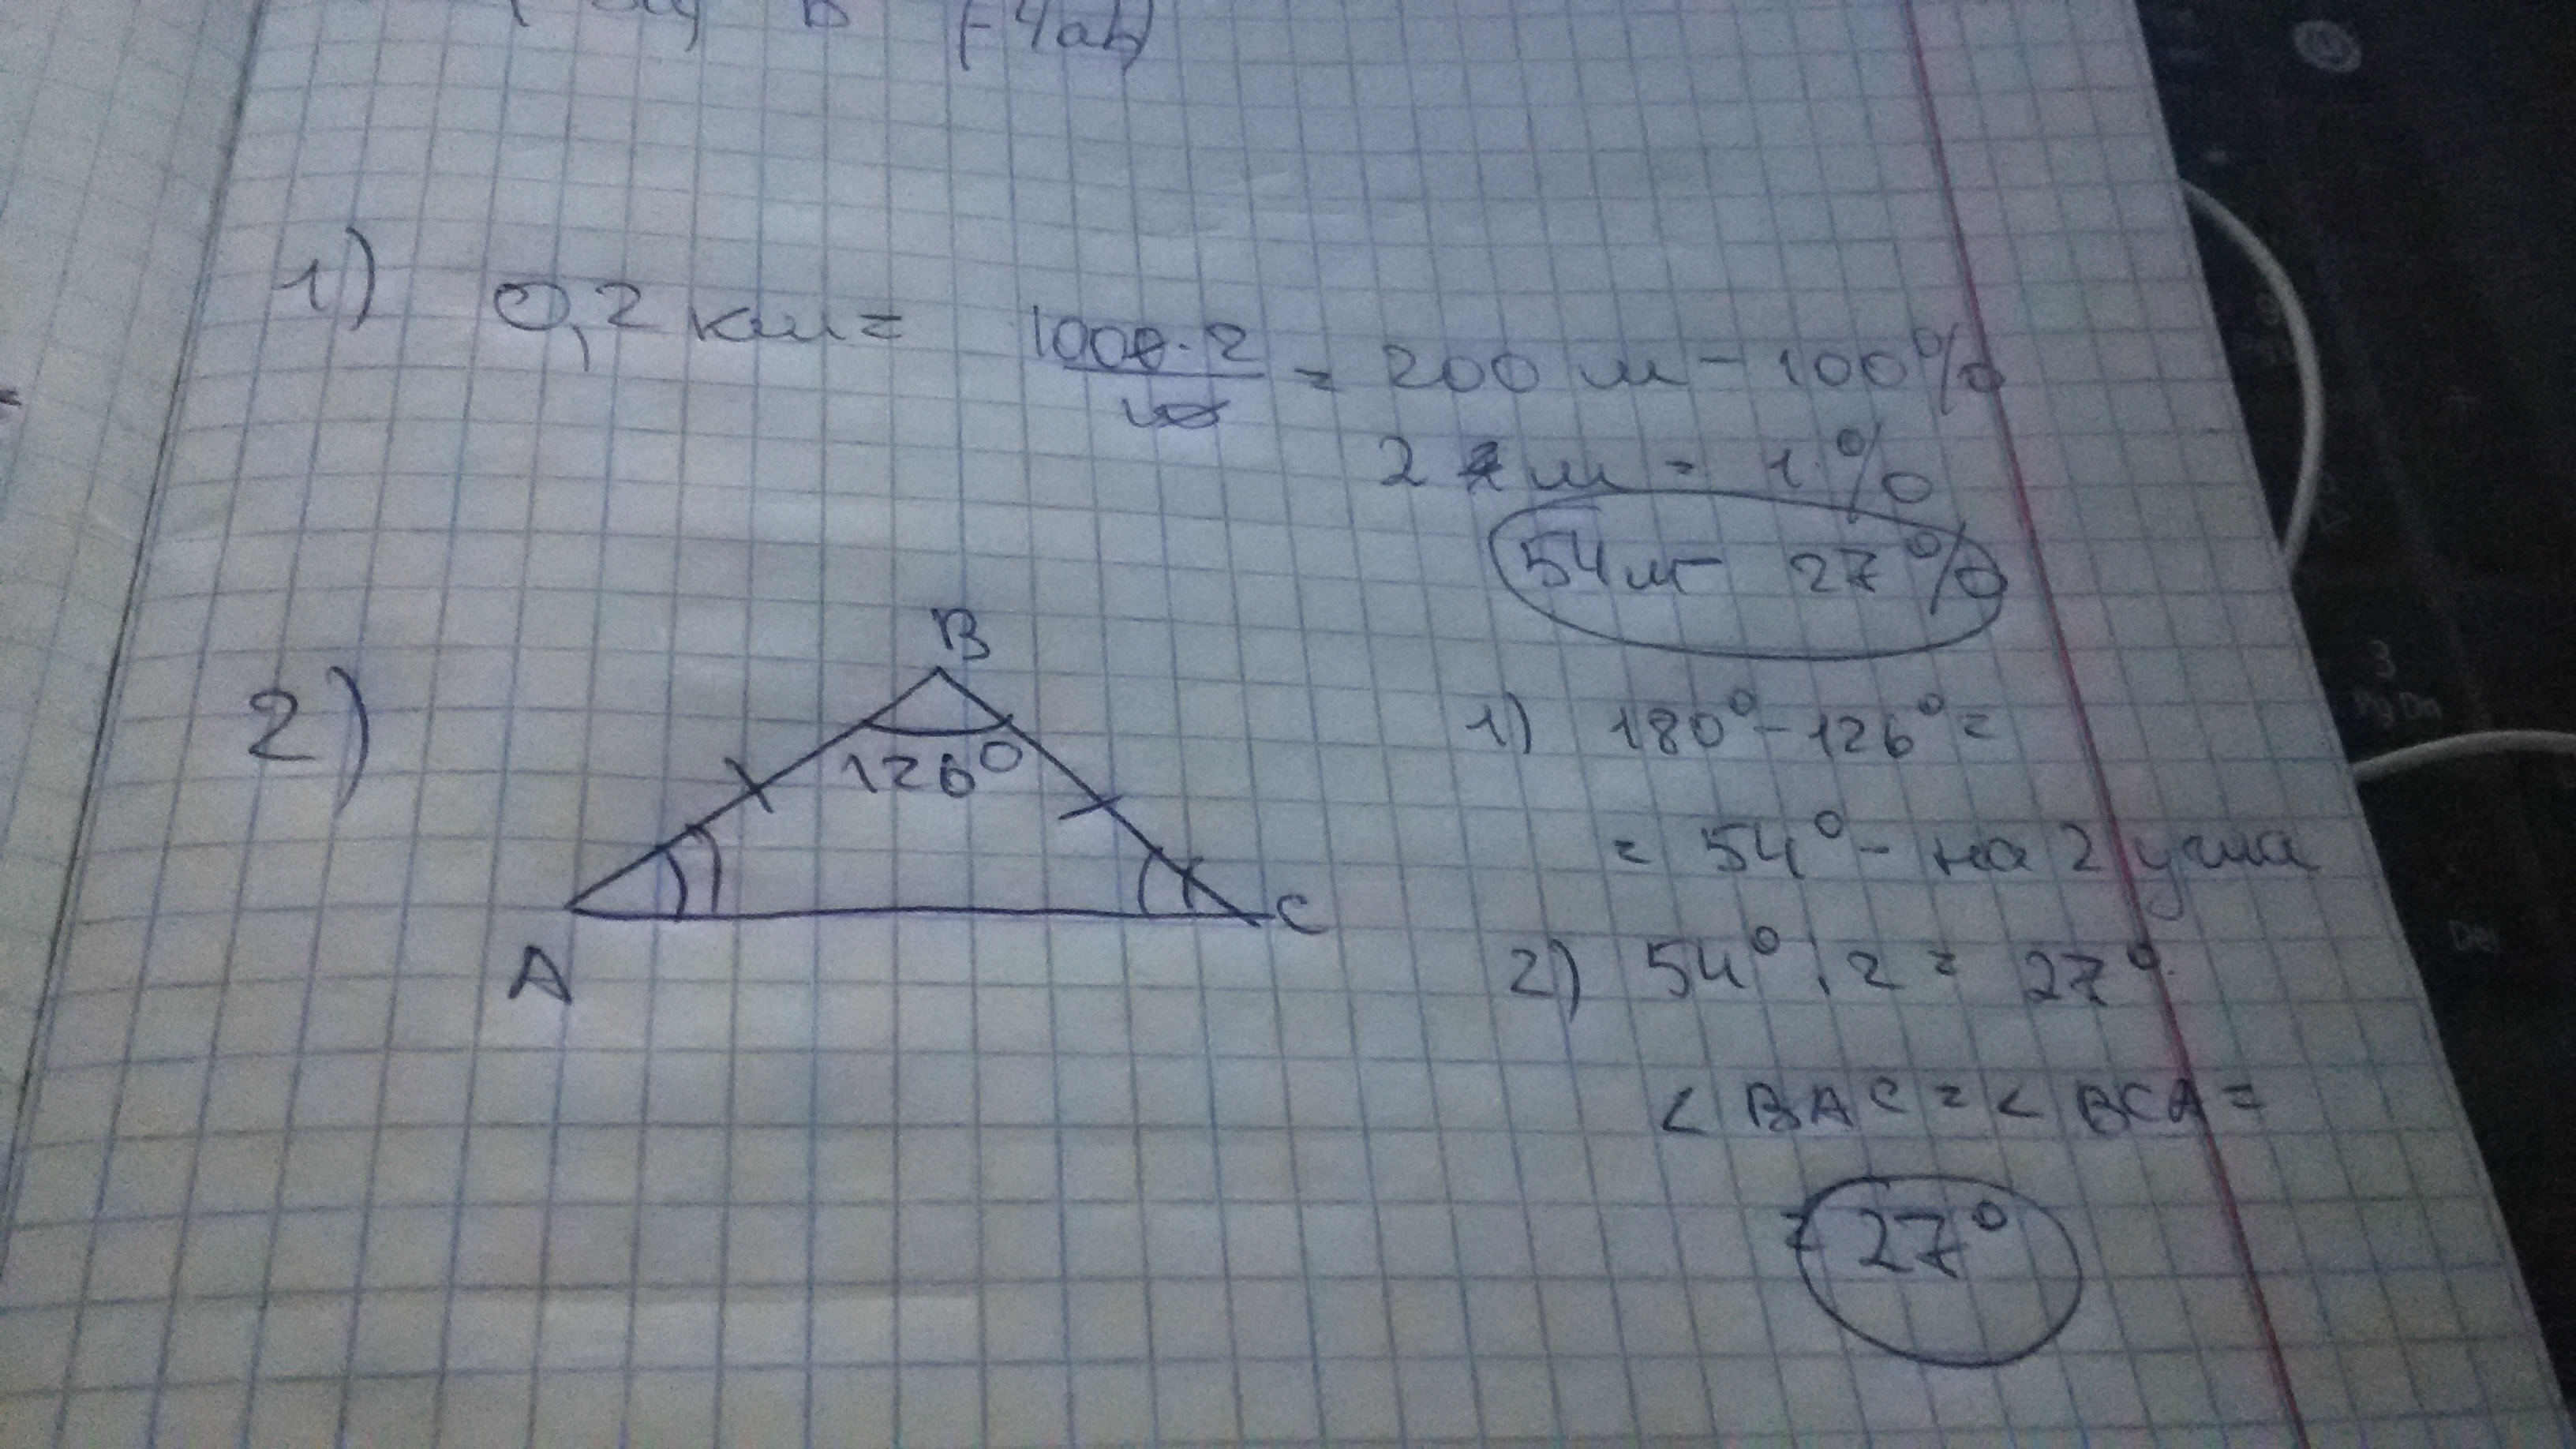 (-4ab)
1) 0,2 км = 1000·2 / 10 = 200 м - 100%
2 м = 1%
54 м - 27%
2)
B
126°
A
C
1) 180° - 126° =
= 54° - на 2 угла
2) 54° : 2 = 27°
< BAC = < BCA =
= 27°
3
Pg Dn
Del